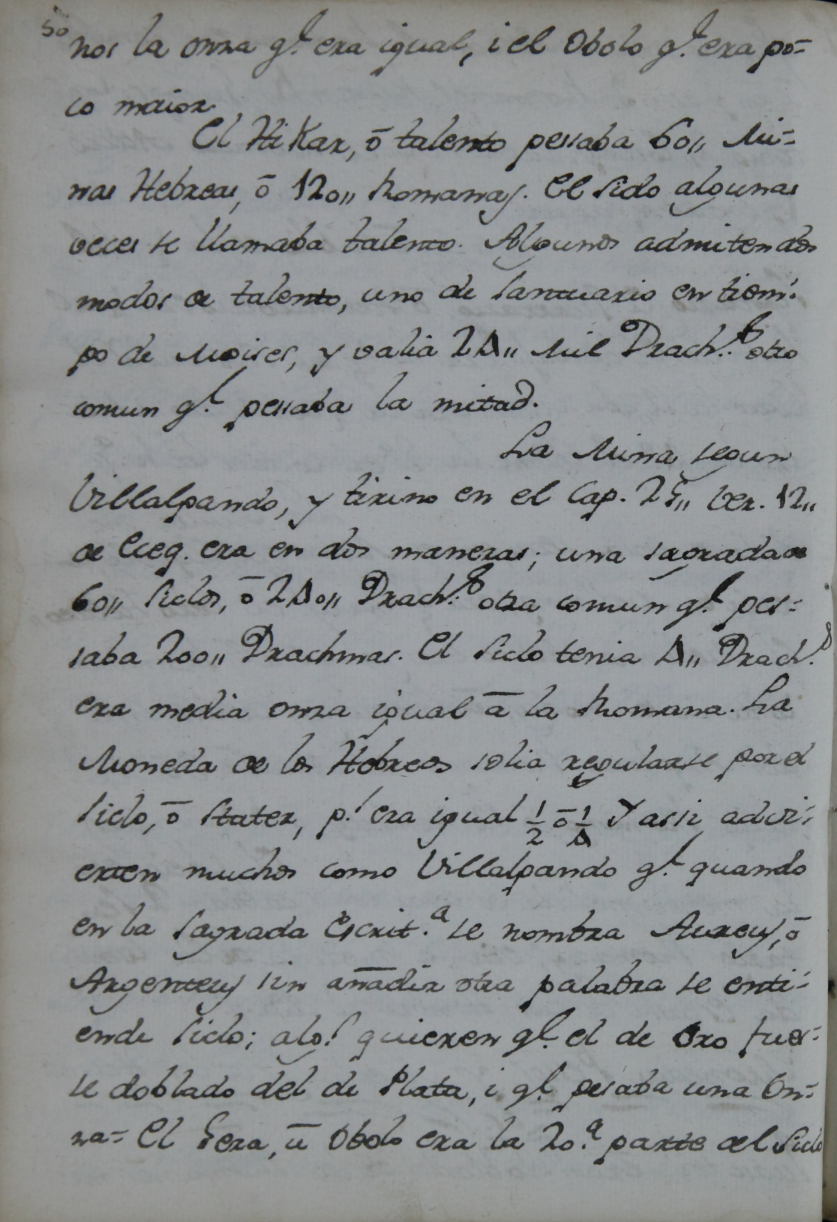 50
nos la onza q.^e era igual, i el Obolo q.^e era po=
co maior
El Hi Kar, ō talento pessaba 60,, Mi=
nas Hebreas, ō 120,, Romanas. El Siclo algunas
veces se llamaba talento. Algunos admiten dos
modos de talento, uno de Santuario en tiem=
po de Moises, y valia 24,, Mil Drach.^s otro
comun q.^e pessaba la mitad.
La Mina segun
Villalpando, y tirino en el Cap. 25,, Ver. 12,,
de Eceq. era en dos maneras; una sagrada de
60,, Siclos, ō 240,, Drach.^s otra comun q.^e pes=
saba 200,, Drachmas. El Siclo tenia 4,, Drach.^s
era media onza igual ā la Romana. La
Moneda de los Hebreos solia regularse por el
Siclo, ō Stater, p.^s era igual 1/2 ō 1/4 Y assi advi=
erten muchos como Villalpando q.^e quando
en la Sagrada Escrit.^a se nombra Aureus, ō
Argenteus sin añadir otra palabra se enti=
ende Siclo; alg.^s quieren q.^e el de Oro fues=
se doblado del de Plata, i q.^e pesaba una On=
za= El Gera, ū Obolo era la 20.^a parte del Siclo